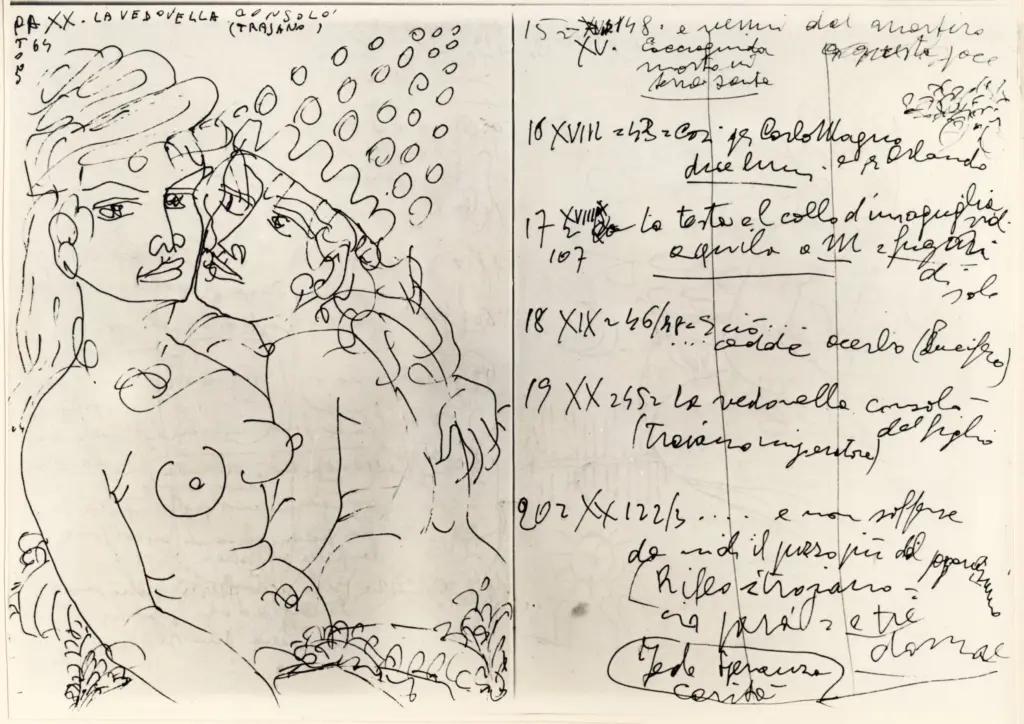 PA XX. LA VEDOVELLA CONSOLÒ
(TRAJANO)
T 64
15 = 148. e venni dal martiro
XV. Cacciaguida a questa pace
morto in
terra santa
16 XVIII = 43 = Così per Carlo Magno
due lumi e per Orlando
17 XVIII La testa e 'l collo d'un'aguglia vid.
107 aquila a M =
di
sole
18 XIX = 46/48 = ciò ...
.... cadde acerbo (Lucifero)
19 XX = 45 = La vedovella consolò
del figlio
(Traiano imperatore)
20 = XX 122/3 ..... e non sofferse
da indi il puzzo più del paganesmo
Rifeo = troiano =
= e tre
donne
Fede Speranza
Carità